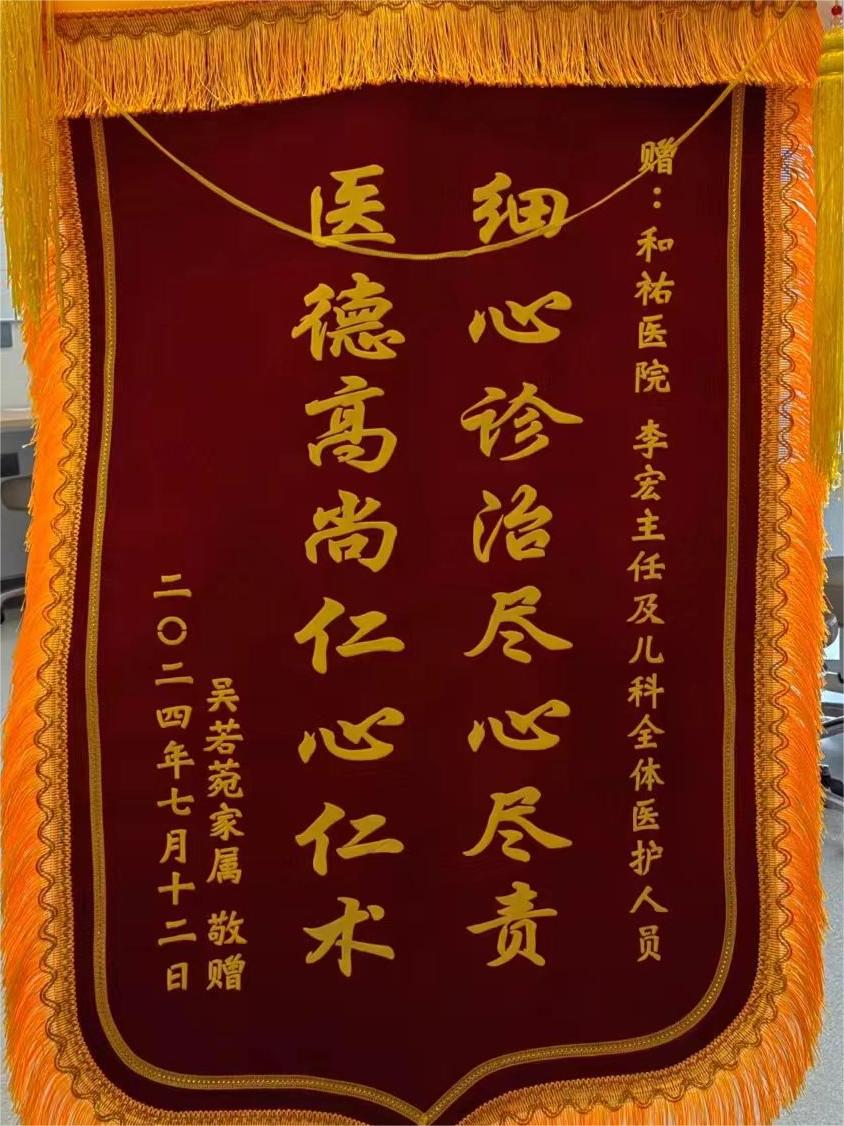 赠：和祐医院 李宏主任及儿科全体医护人员
细心诊治尽心尽责
医德高尚仁心仁术
吴若菀家属 敬赠
二〇二四年七月十二日